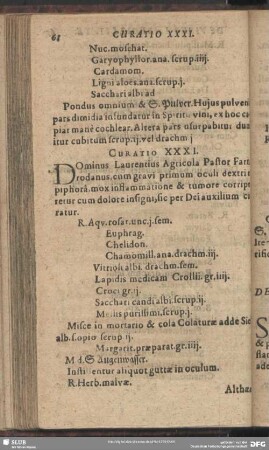 68 CURATIO XXXI.
Nuc. moschat.
Garyophyllor. ana. scrup. iiij.
Cardamom.
Ligni aloës ana. scrup. j.
Sacchari albi ad
Pondus omnium & S. Pulver. Hujus pulveri
pars dimidia infundatur in Spirit. vini, ex hoc ca
piat manè cochlear. Altera pars usurpabitur du
itur cubitum scrup. ij. vel drachm j
CURATIO XXXI.
Dominus Laurentius Agricola Pastor
rodanus. cum gravi primum oculi dextri
piphorâ. mox inflammatione & tumore corrip
retur cum dolore insigni, sic per Dei auxilium c
ratur.
R. Aqv. rosar. unc. j. sem.
Euphrag.
Chelidon.
Chamomill. ana. drachm. iij.
Vitrioli albi. drachm. sem.
Lapidis medicam Crollii. gr. iiij.
Croci gr. ij.
Sacchari candi albi. scrup. ij.
Mellis purissimi. scrup. j.
Misce in mortario & cola Colaturæ adde Sie
alb. s. opio scrup ij.
Margarit. præparat. gr. iiij.
M d. S Augenwasser.
Instillentur aliquot guttæ in oculum.
R. Herb. malvæ.
Althææ